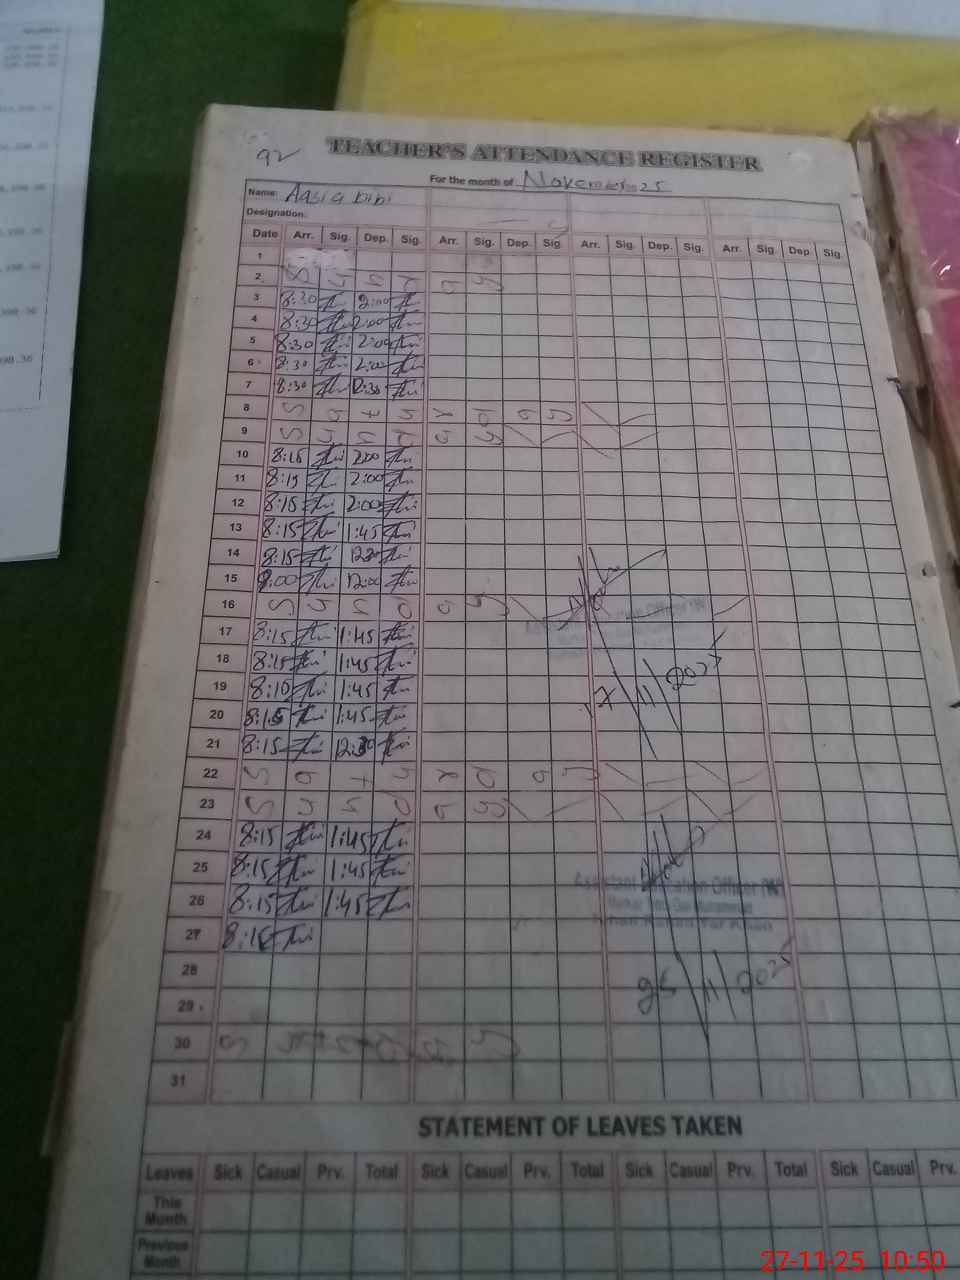 92
TEACHER'S ATTENDANCE REGISTER
For the month of November 25
Name: Aasia bibi
Designation:
Date Arr. Sig. Dep. Sig. Arr. Sig. Dep. Sig. Arr. Sig. Dep. Sig. Arr. Sig. Dep Sig.
1
2 S u n d a y
3 8:30 2:00
4 8:30 2:00
5 8:30 2:00
6 8:30 2:00
7 8:30 12:30
8 S a t u r d a y
9 S u n d a y
10 8:15 2:00
11 8:15 2:00
12 8:15 2:00
13 8:15 1:45
14 8:15
15 12:00
16 S u n d a y
17 8:15 1:45
18 8:15 1:45
19 8:15 1:45
20 8:15 1:45
21 8:15 12:30
17/11/2025
22 S a t u r d a y
23 S u n d a y
24 8:15 1:45
25 8:15 1:45
26 8:15 1:45
Assistant Education Officer (W)
27 8:15
28
25/11/2025
29
30 S u n d a y
31
STATEMENT OF LEAVES TAKEN
Leaves Sick Casual Prv. Total Sick Casual Prv. Total Sick Casual Prv. Total Sick Casual Prv.
This Month
Previous Month
27-11-25 10:50